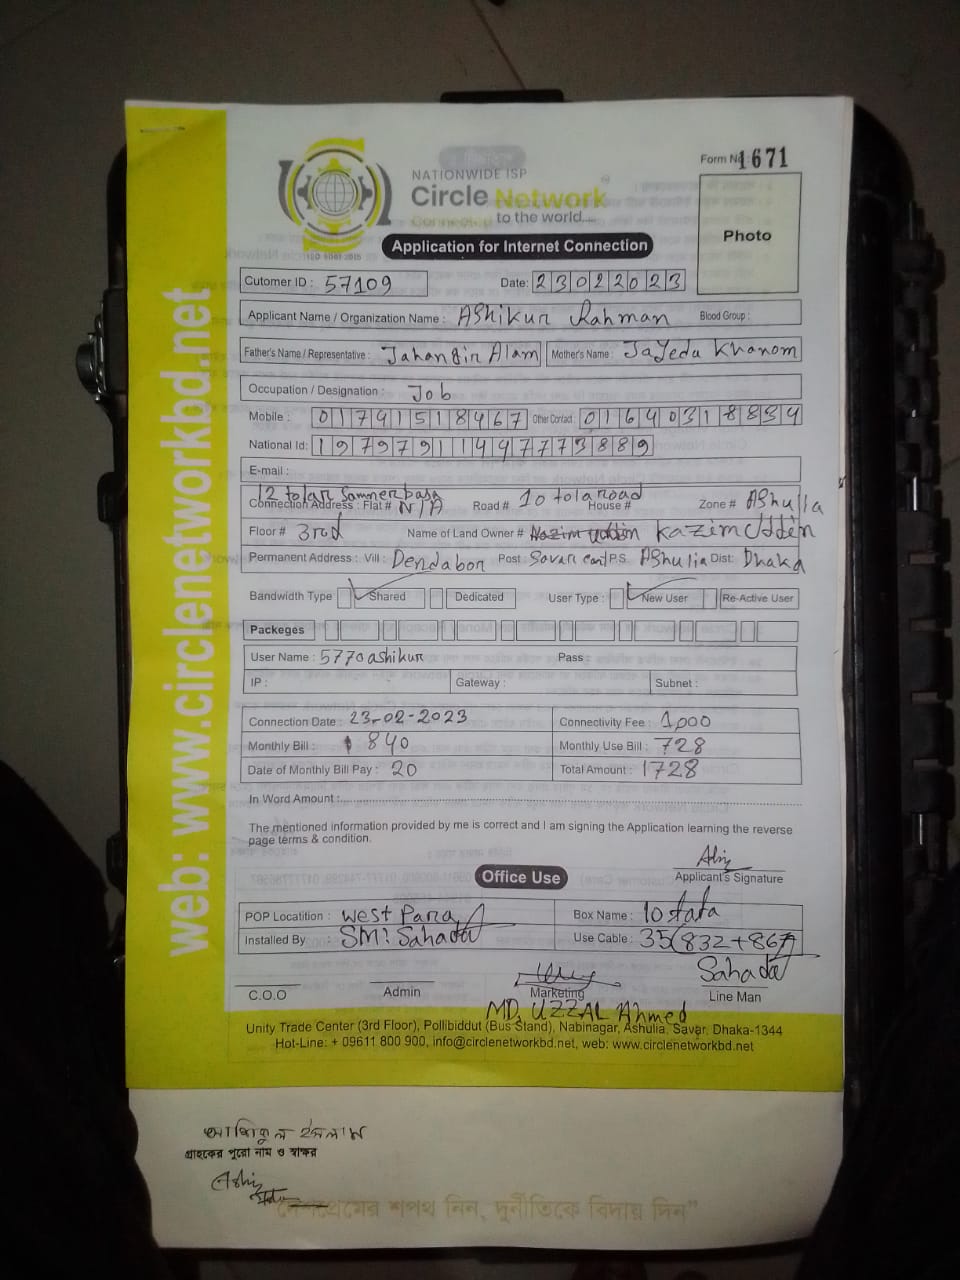 Form No 1671
NATIONWIDE ISP
Circle Network
Connecting to the world....
ISO 9001:2015
Photo
Application for Internet Connection
Cutomer ID : 57109 Date: 23022023
Applicant Name / Organization Name : AShikur Rahman Blood Group :
Father's Name / Representative : Jahangir Alam Mother's Name : JaYeda Khanom
Occupation / Designation : Job
Mobile : 01741518467 Other Contact : 01640318834
National Id: 19797911497773889
E-mail :
12 tolar Samner basa
Connection Address : Flat # N/A Road # 10 tola road House # Zone # AShulia
Floor # 3rd Name of Land Owner # Nazim Uddin Kazim Uddin
Permanent Address : Vill : Dendabor Post : Savar cant P.S. AShulia Dist: Dhaka
Bandwidth Type Shared Dedicated User Type : New User Re-Active User
Packeges
User Name : 5770ashikur Pass :
IP : Gateway : Subnet :
Connection Date : 23-02-2023 Connectivity Fee : 1000
Monthly Bill : 840 Monthly Use Bill : 728
Date of Monthly Bill Pay : 20 Total Amount : 1728
In Word Amount :
The mentioned information provided by me is correct and I am signing the Application learning the reverse
page terms & condition.
Applicant's Signature
Office Use
POP Locatition : West Para Box Name : 10 tala
Installed By : SM: Sahadat Use Cable : 35(832+867)
Sahadat
C.O.O Admin Marketing Line Man
MD. UZZAL Ahmed
Unity Trade Center (3rd Floor), Pollibiddut (Bus Stand), Nabinagar, Ashulia, Savar, Dhaka-1344
Hot-Line: + 09611 800 900, info@circlenetworkbd.net, web: www.circlenetworkbd.net
web: www.circlenetworkbd.net
আশিকুল ইসলাম
গ্রাহকের পুরো নাম ও স্বাক্ষর
দেশপ্রেমের শপথ নিন, দুর্নীতিকে বিদায় দিন”